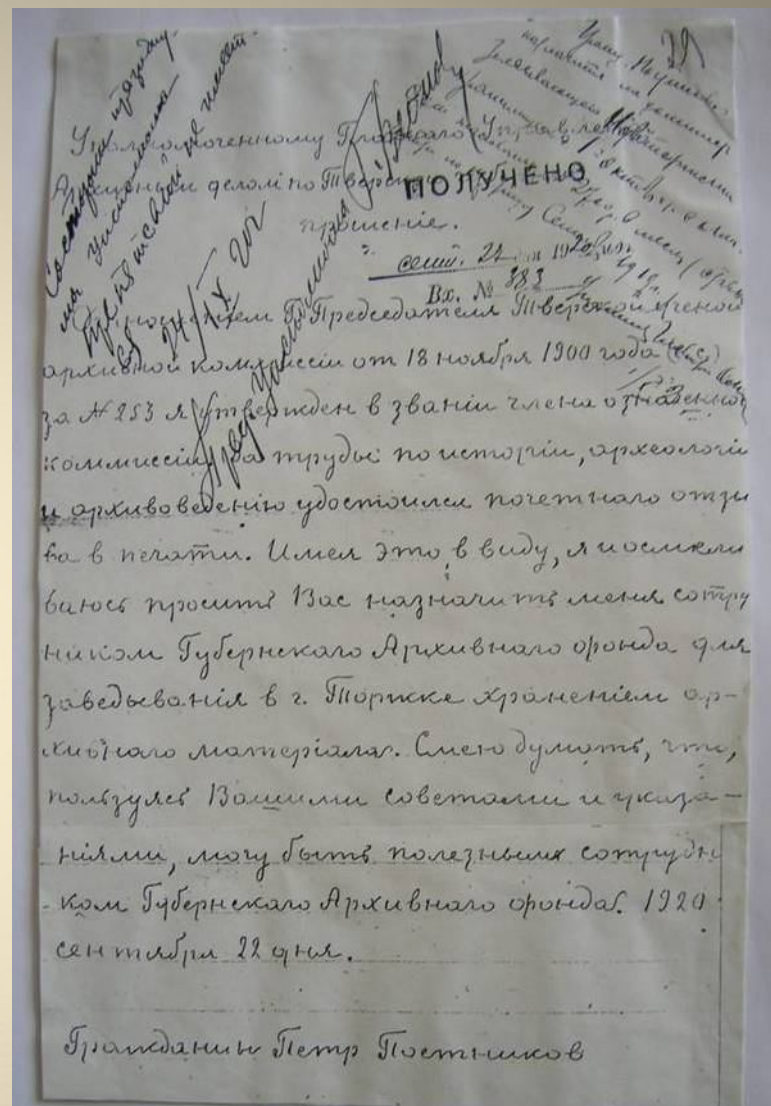 39
Состороны президиу-
ма Уисполкома
препятствий не имеет-
ся 24/IX 20г
Уполномоченному Главнаго Управления
Архивным делом по Тверской
ПОЛУЧЕНО
прошеніе.
сент. 24 1920
Вх. № 383
Отношением Г. Председателя Тверской ученой
архивной коммиссіи от 18 ноября 1900 года
за № 253 я утвержден в званіи члена означенной
коммиссіи, за труды по исторіи, археологіи
и архивоведенію удостоился почетнаго отзы
ва в печати. Имея это в виду, я и осмели
ваюсь просить Вас назначить меня сотру
ником Губернскаго Архивнаго фонда для
заведыванія в г. Торжке храненіем ар-
хивнаго матеріала. Смею думать, что,
пользуясь Вашими советами и указа-
ніями, могу быть полезным сотрудн
ком Губернскаго Архивнаго фонда. 1920
сентября 22 дня.
Гражданин Петр Постников